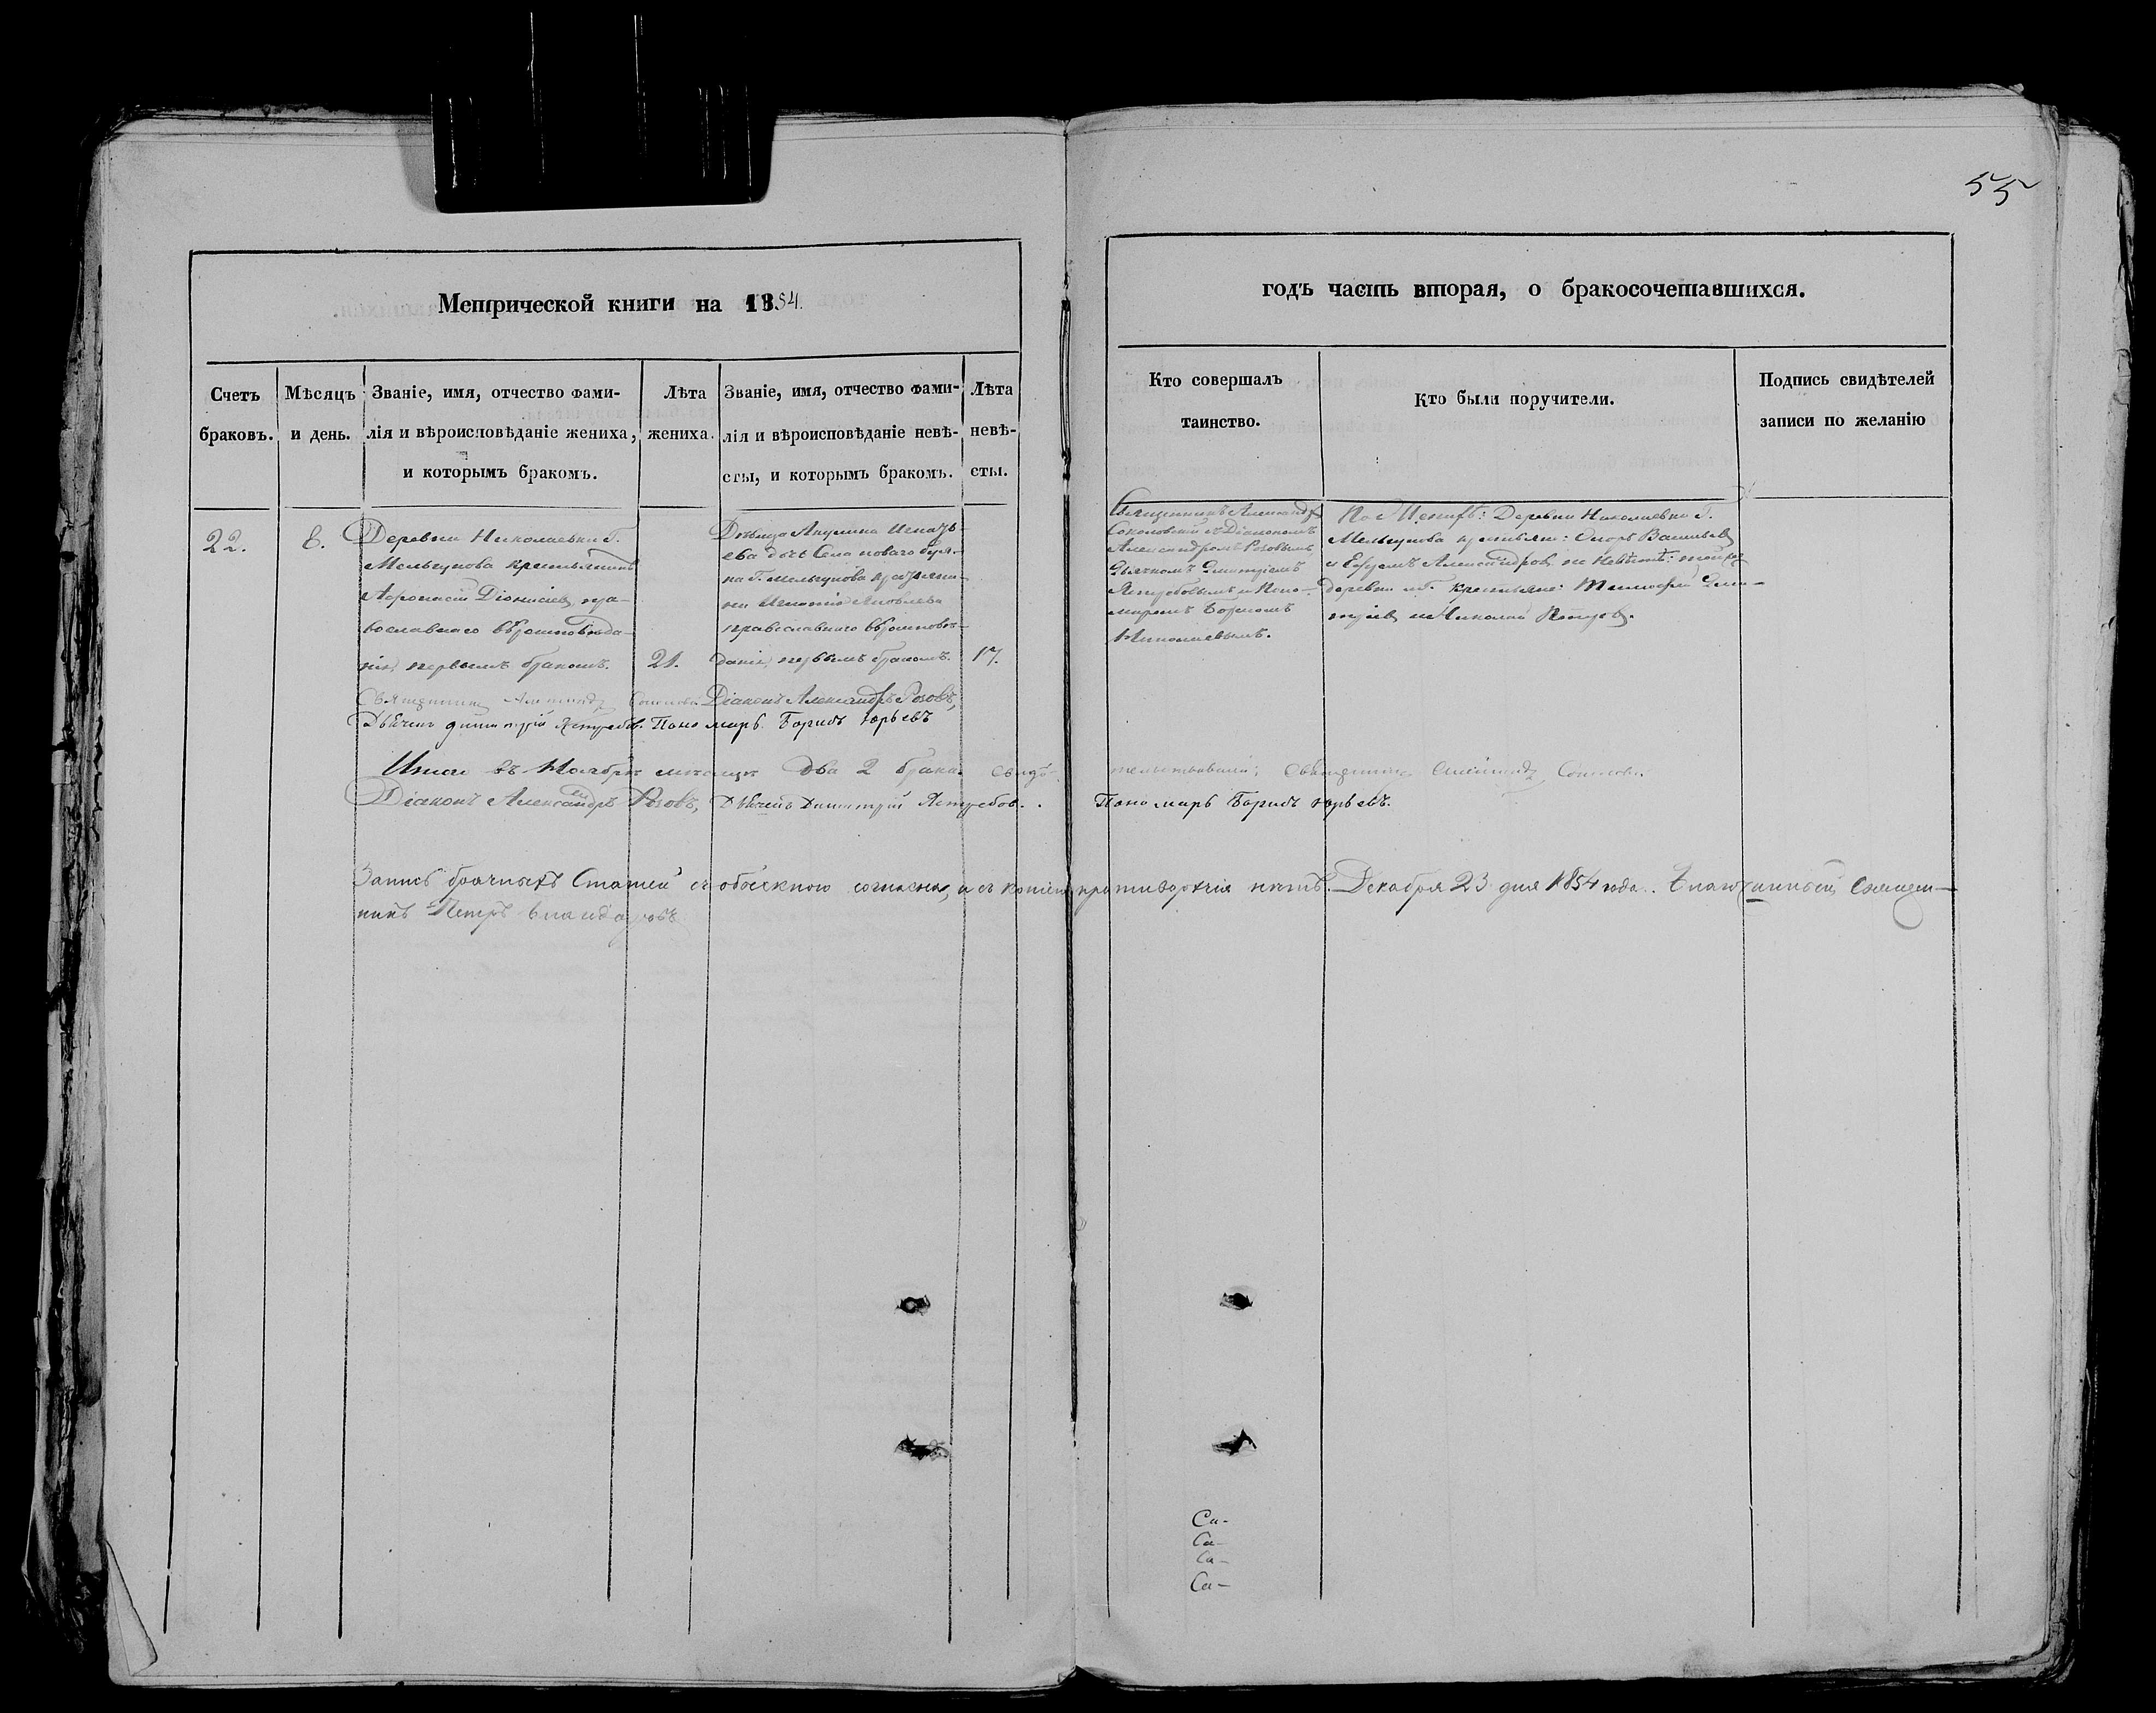 55
Метрической книги на 1854.
годъ часть вторая, о бракосочетавшихся.
Счетъ
браковъ.
Мѣсяцъ
и день.
Званіе, имя, отчество фами-
лія и вѣроисповѣданіе жениха,
и которымъ бракомъ.
Лѣта
жениха.
Званіе, имя, отчество фами-
лія и вѣроисповѣданіе невѣ-
сты, и которымъ бракомъ.
Лѣта
невѣ-
сты.
Кто совершалъ
таинство.
Кто были поручители.
Подпись свидѣтелей
записи по желанію
22.
8.
Деревни Николаевки Г.
Мельгунова крестьянинъ
Афонасій Діонисіевъ, пра-
вославнаго вѣроисповѣда-
нія, первымъ бракомъ.
21.
Дѣвица Акулина Игнатье-
ева дочь Села новаго
Г. мельгунова крестьяни-
на Игнатія Яковлева
православнаго вѣроисповѣ-
данія, первымъ бракомъ.
17.
Священникъ Александръ
Соколовскій съ Діакономъ
Александромъ Розовымъ,
Дьячкомъ Димитріемъ
Ястребовымъ и Поно-
маремъ Борисомъ
По Женихѣ: Деревни Николаевки Г.
Мельгунова крестьяне: Васильевъ
и Ефремъ Александровъ, по Невѣстѣ: той же
деревни и Г. крестьяне: Тимофей Дми-
тріевъ и Николай Петровъ.
Священникъ Александръ Діаконъ Александръ Розовъ,
Дьячекъ Димитрій Ястребовъ. Пономарь Борисъ Юрьевъ
Итого въ Ноябрѣ мѣсяцѣ два 2 брака. Свидѣ-
тельствовали: Священникъ Александръ
Діаконъ Александръ Розовъ, Дьячекъ Димитрій Ястребов. Пономарь Борисъ Юрьевъ.
Запись брачныхъ Статей съ обыскною согласна, и съ копіею противорѣчія нѣтъ. Декабря 23 дня 1854 года. Благочинный, Священ-
никъ Петръ
Са-
Са-
Са-
Са-